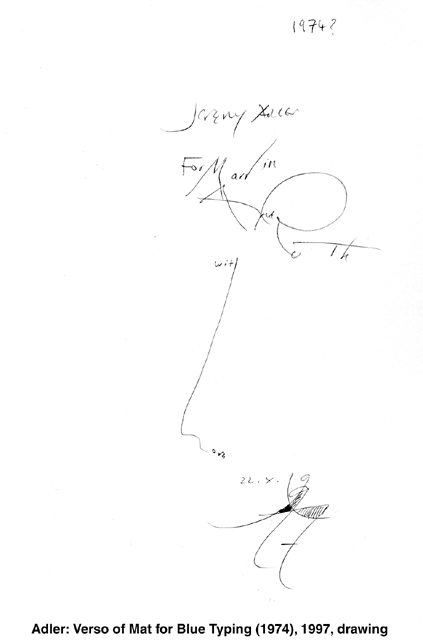 1974?
Jeremy Adler
For Martin
and
Ruth
with
love
22.X.19
97
Adler: Verso of Mat for Blue Typing (1974), 1997, drawing